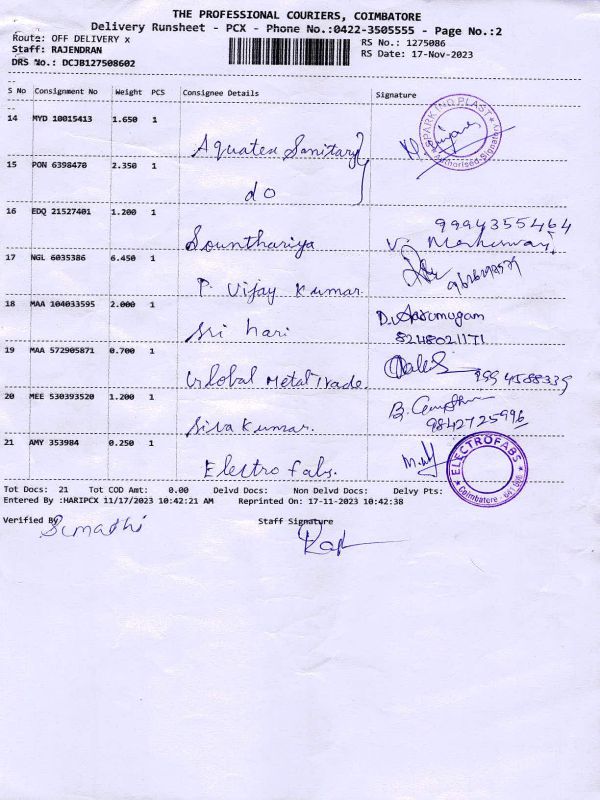 THE PROFESSIONAL COURIERS, COIMBATORE
Delivery Runsheet - PCX - Phone No.:0422-3505555 - Page No.:2
Route: OFF DELIVERY x
RS No.: 1275086
Staff: RAJENDRAN
RS Date: 17-Nov-2023
DRS No.: DCJB127508602
S No Consignment No Weight PCS Consignee Details Signature
14 MYD 10015413 1.650 1
Aquatex Sanitary
SPARKING PLAST
Authorised Signatory
15 PON 6398470 2.350 1
do
16 EDQ 21527401 1.200 1
Sounthariya
9994355464
V.
17 NGL 6035386 6.450 1
P. Vijay Kumar
18 MAA 104033595 2.000 1
Sri hari
D. Arumugam
8248021171
19 MAA 572905871 0.700 1
Global Metal Trade.
9994588339
20 MEE 530393520 1.200 1
Siva Kumar.
9842725996
21 AMY 353984 0.250 1
Electro Fabs.
ELECTROFABS
Coimbatore
Tot Docs: 21 Tot COD Amt: 0.00 Delvd Docs: Non Delvd Docs: Delvy Pts:
Entered By :HARIPCX 11/17/2023 10:42:21 AM Reprinted On: 17-11-2023 10:42:38
Verified By
Staff Signature
Sumathi